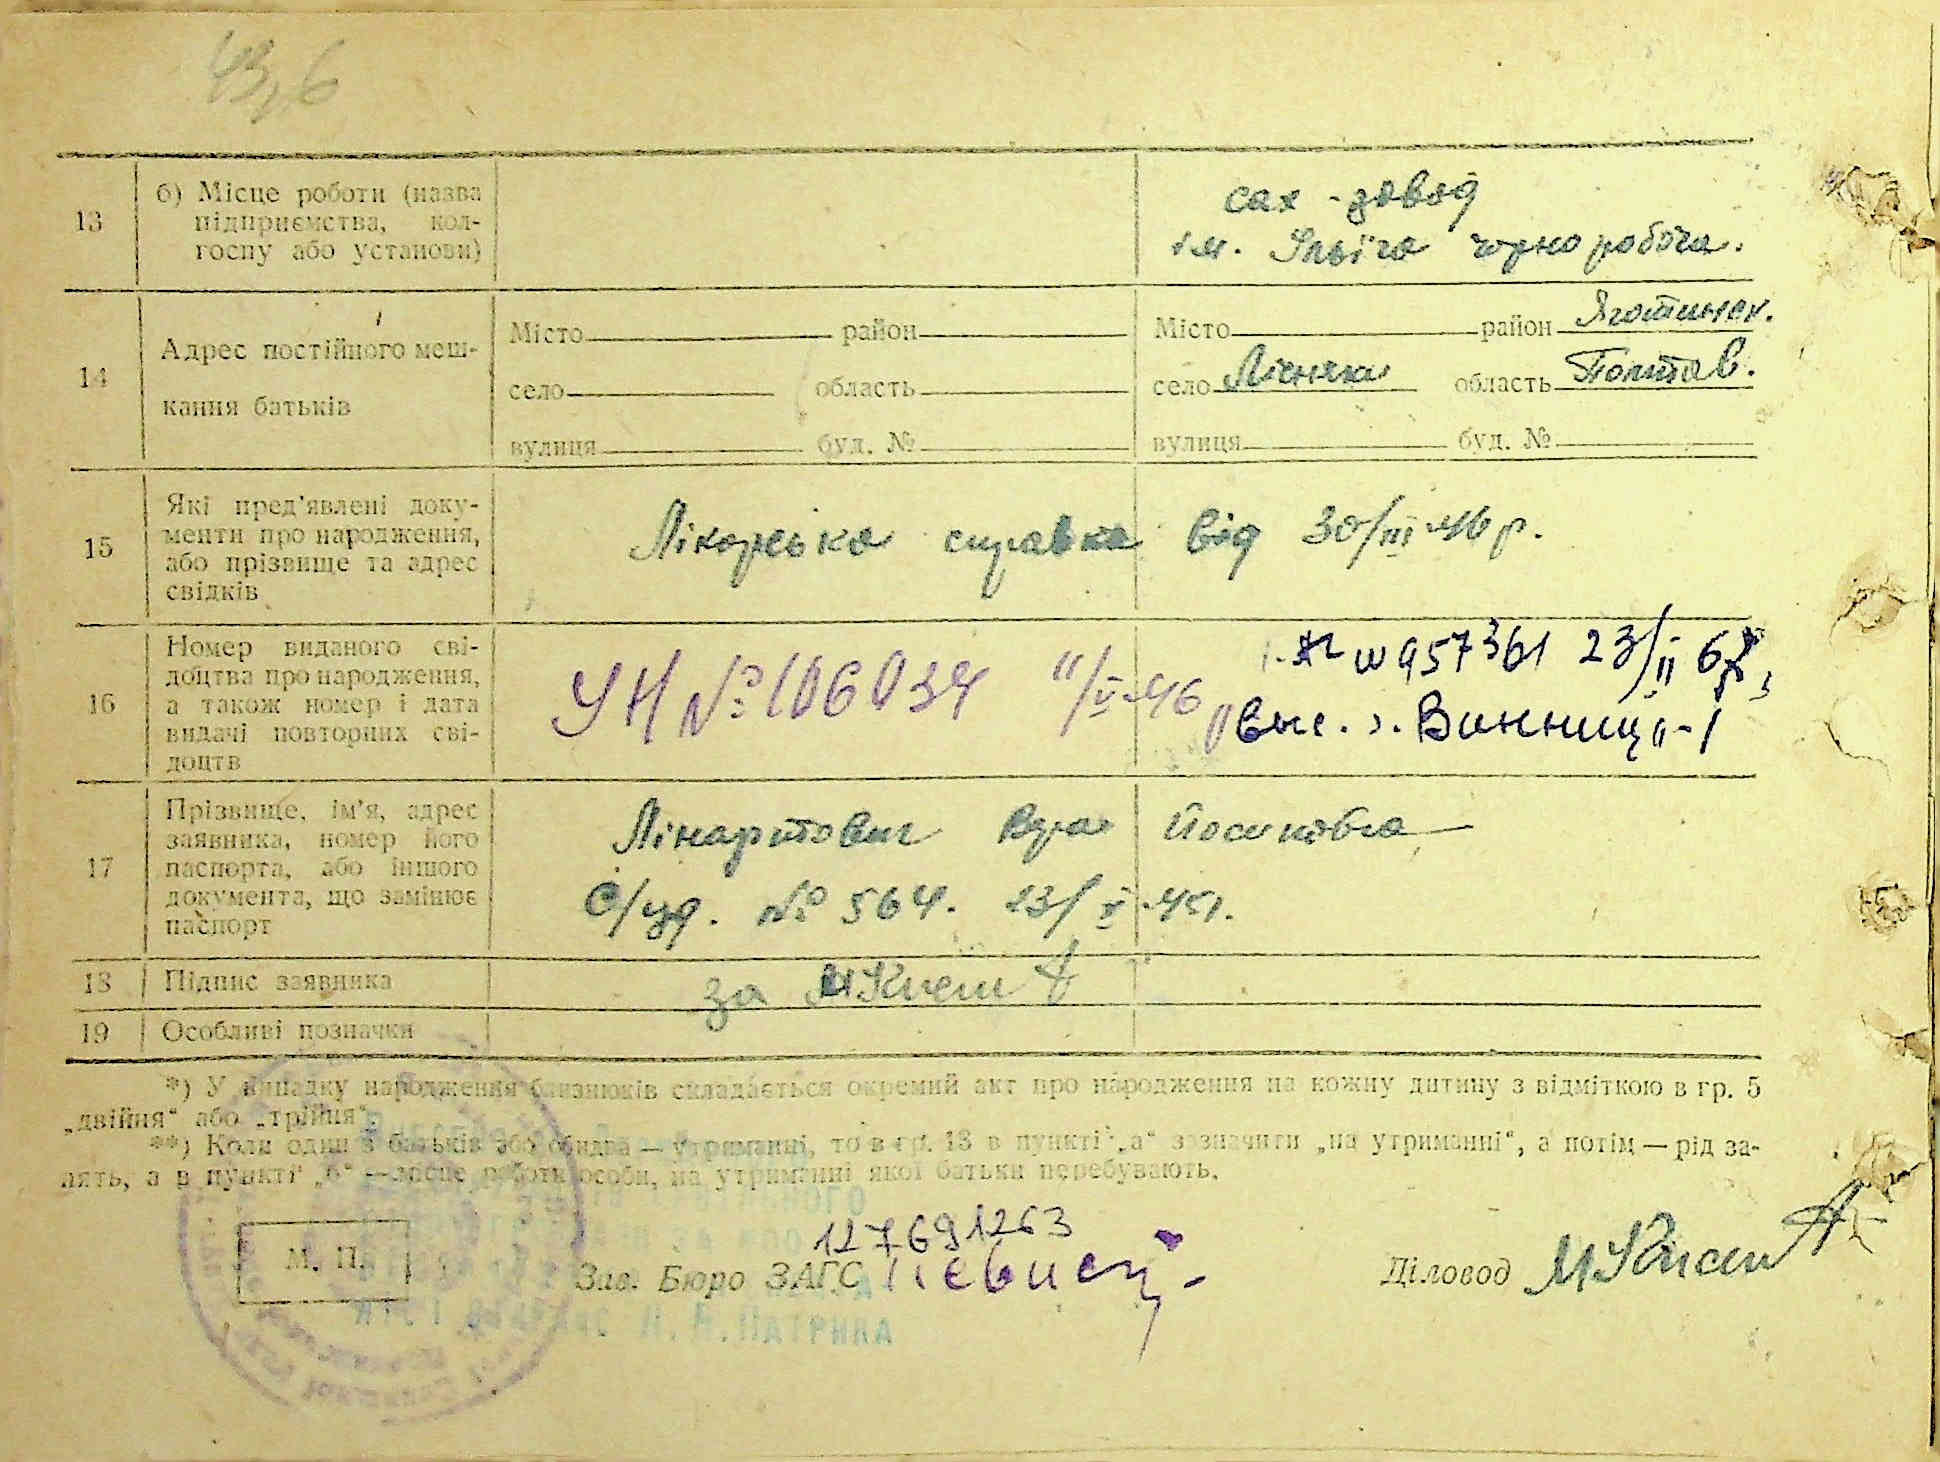 43,6
13
б) Місце роботи (назва
підприємства, кол-
госпу або установи)
сах-завод
ім. Ільіча чорноробоча.
14
Адрес постійного меш-
кання батьків
Місто район
село область
вулиця буд. №
Місто район Яготинск.
село Лісняки область Полтав.
вулиця буд. №
15
Які пред'явлені доку-
менти про народження,
або прізвище та адрес
свідків
Лікарська справка від 30/III-46 р.
16
Номер виданого сві-
доцтва про народження,
а також номер і дата
видачі повторних сві-
доцтв
УН № 106034 11/V-46
957361 23/II
выс. г. Винница-1
17
Прізвище, ім'я, адрес
заявника, номер його
паспорта, або іншого
документа, що замінює
паспорт
Лінартович Йосиповна
С/уд. № 564. 23/V-45.
18
Підпис заявника
за
19
Особливі позначки
*) У випадку народження близнюків складається окремий акт про народження на кожну дитину з відміткою в гр. 5
„двійня“ або „трійня“.
**) Коли один з батьків або обидва — утриманні, то в гр. 13 в пункті „а“ зазначити „на утриманні“, а потім — рід за-
нять, а в пункті „б“ — місце роботи особи, на утриманні якої батьки перебувають.
127691263
М. П.
Зав. Бюро ЗАГС
Діловод